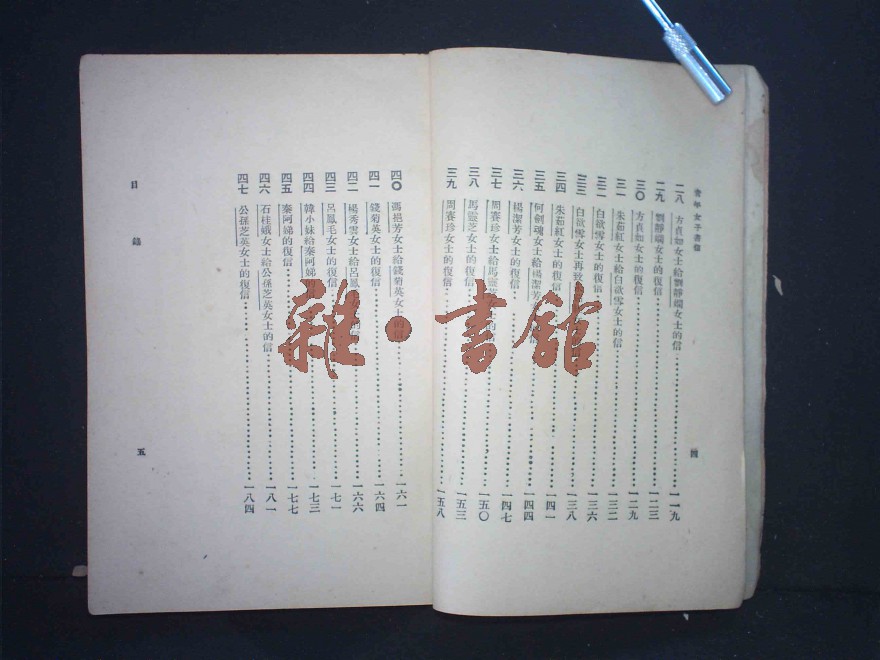 青年女子書信
二八 方貞如女士給劉靜嫻女士的信 一一九
二九 劉靜嫻女士的復信 一二三
三〇 方貞如女士的復信 一二九
三一 朱茹紅女士給白欲雪女士的信 一三二
三二 白欲雪女士的復信 一三六
三三 白欲雪女士再致 一三八
三四 朱茹紅女士的復信 一四一
三五 何劍魂女士給楊潔芳 一四四
三六 楊潔芳女士的復信 一四七
三七 周賽珍女士給馬靈芝女士的信 一五〇
三八 馬靈芝女士的復信 一五三
三九 周賽珍女士的復信 一五八
四
四〇 馮挹芳女士給錢菊英女士的信 一六一
四一 錢菊英女士的復信 一六四
四二 楊秀雲女士給呂鳳 一六六
四三 呂鳳毛女士的復信 一七一
四四 韓小妹給秦阿娣 一七三
四五 秦阿娣的復信 一七七
四六 石桂娥女士給公孫芝英女士的信 一八一
四七 公孫芝英女士的復信 一八四
目錄
五
雜·書館